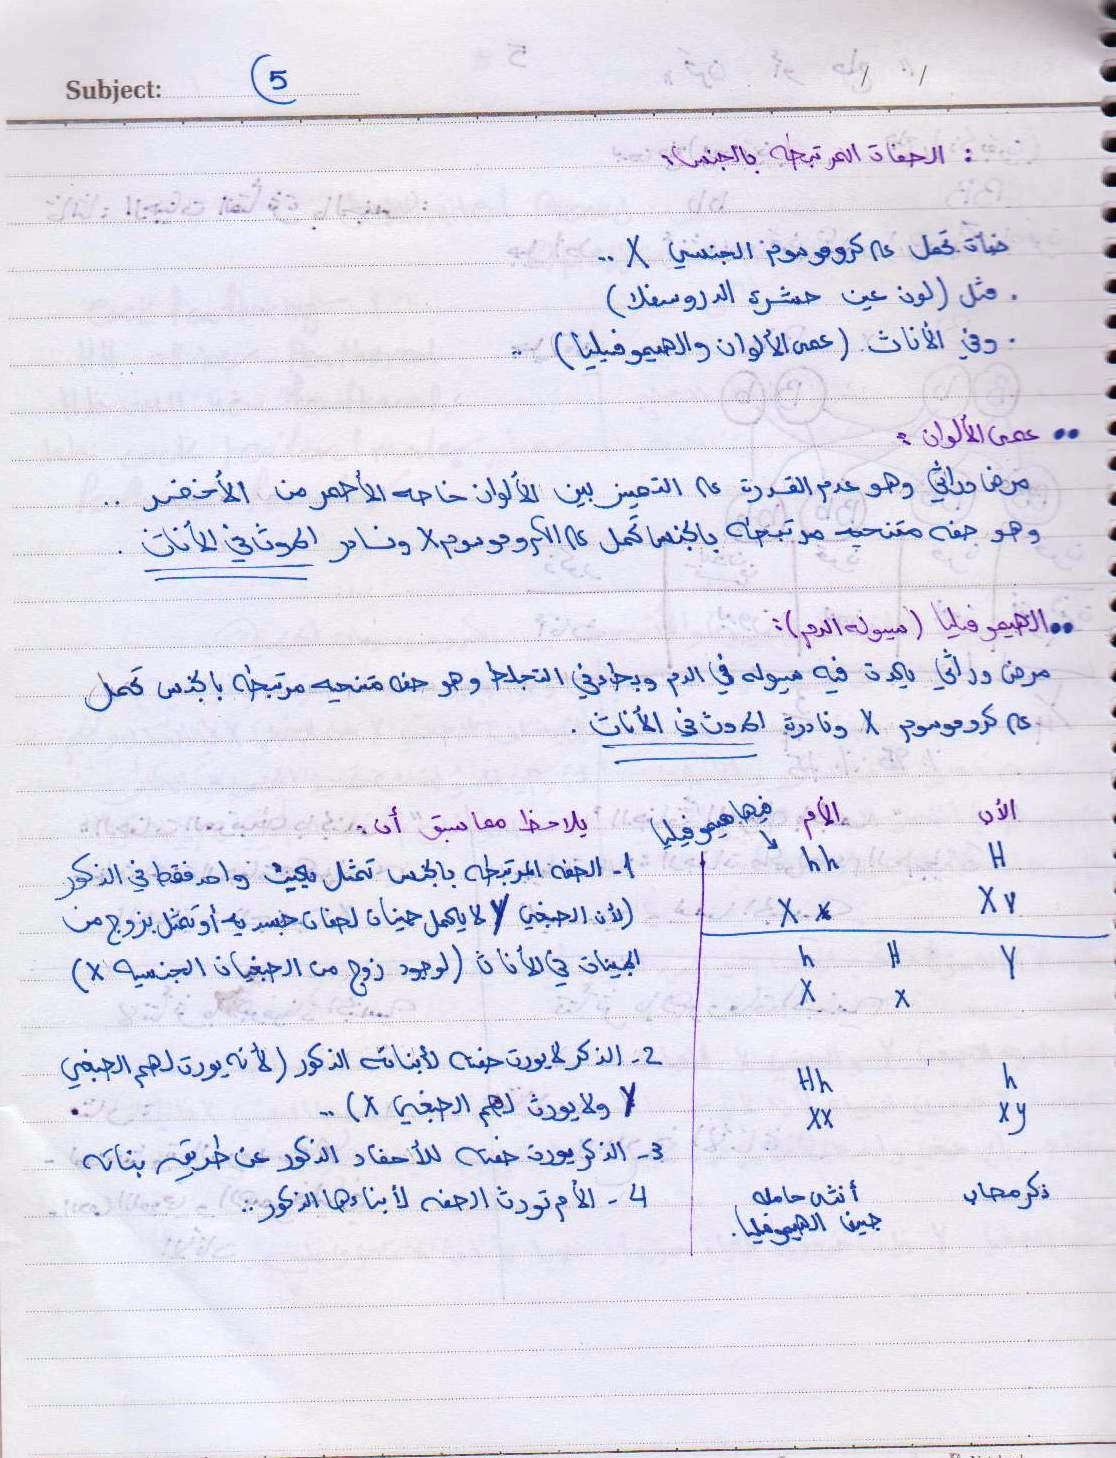 Subject: 5
/ /
: الصفات المرتبطه بالجنس :
صفات تحمل على كروموسوم الجنسي X ..
. مثل (لون عين حشرة الدروسفلا)
. وفي الأناث (عمى الألوان والهيموفيليا) ..
•• عمى الألوان :
مرض وراثي وهو عدم القدرة على التمييز بين الألوان خاصه الأحمر من الأخضر ..
وهو صفه متنحيه مرتبطه بالجنس تحمل على الكروموسوم X ونادر الحدوث في الأناث .
•• الهيموفيليا (سيوله الدم) :
مرض وراثي يحدث فيه سيوله في الدم وبطء في التجلط وهو صفه متنحيه مرتبطه بالجنس تحمل
على كروموسوم X ونادرة الحدوث في الأناث .
الأب الأم فيها هيموفيليا
H hh
X Y X x
Y H h
x X
h Hh
xy Xx
ذكر مصاب أنثى حامله
جين الهيموفيليا .
يلاحظ مما سبق أن :
1- الصفه المرتبطه بالجنس تمثل بجين واحد فقط في الذكور
(لأن الصبغي Y لا يحمل جينات لصفات جسديه أو تمثل بزوج من
الجينات في الأناث (لوجود زوج من الصبغيات الجنسيه X)
2- الذكر لا يورث صفته لأبنائه الذكور (لأنه يورث لهم الصبغي
Y ولا يورث لهم الصبغي X) ..
3- الذكر يورث صفته للأحفاد الذكور عن طريق بناته
4- الأم تورث الصفه لأبناءها الذكور ..